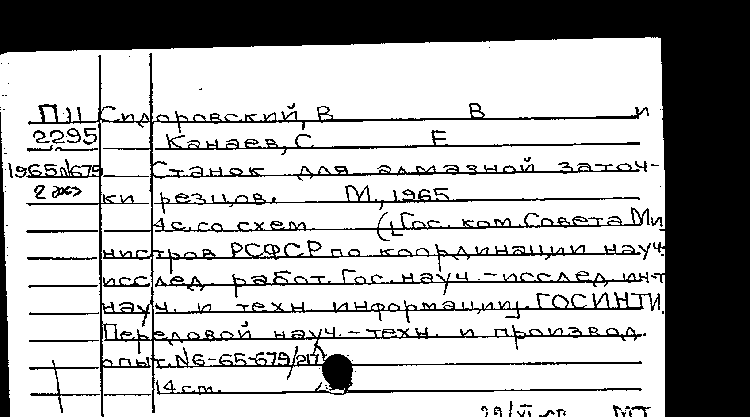 П11 Сидоровский, В В и
2295 Канаев, С Е
1965 № 679 Станок для алмазной заточ-
2 экз ки резцов. М., 1965
4 с. со схем. (Гос. ком. Совета Ми
нистров РСФСР по координации науч-
исслед. работ. Гос. науч.-исслед. ин-т
науч. и техн. информации. ГОСИНТИ.
Передовой науч.-техн. и производ.
опыт. № 6-65-679/
14 см.
МТ